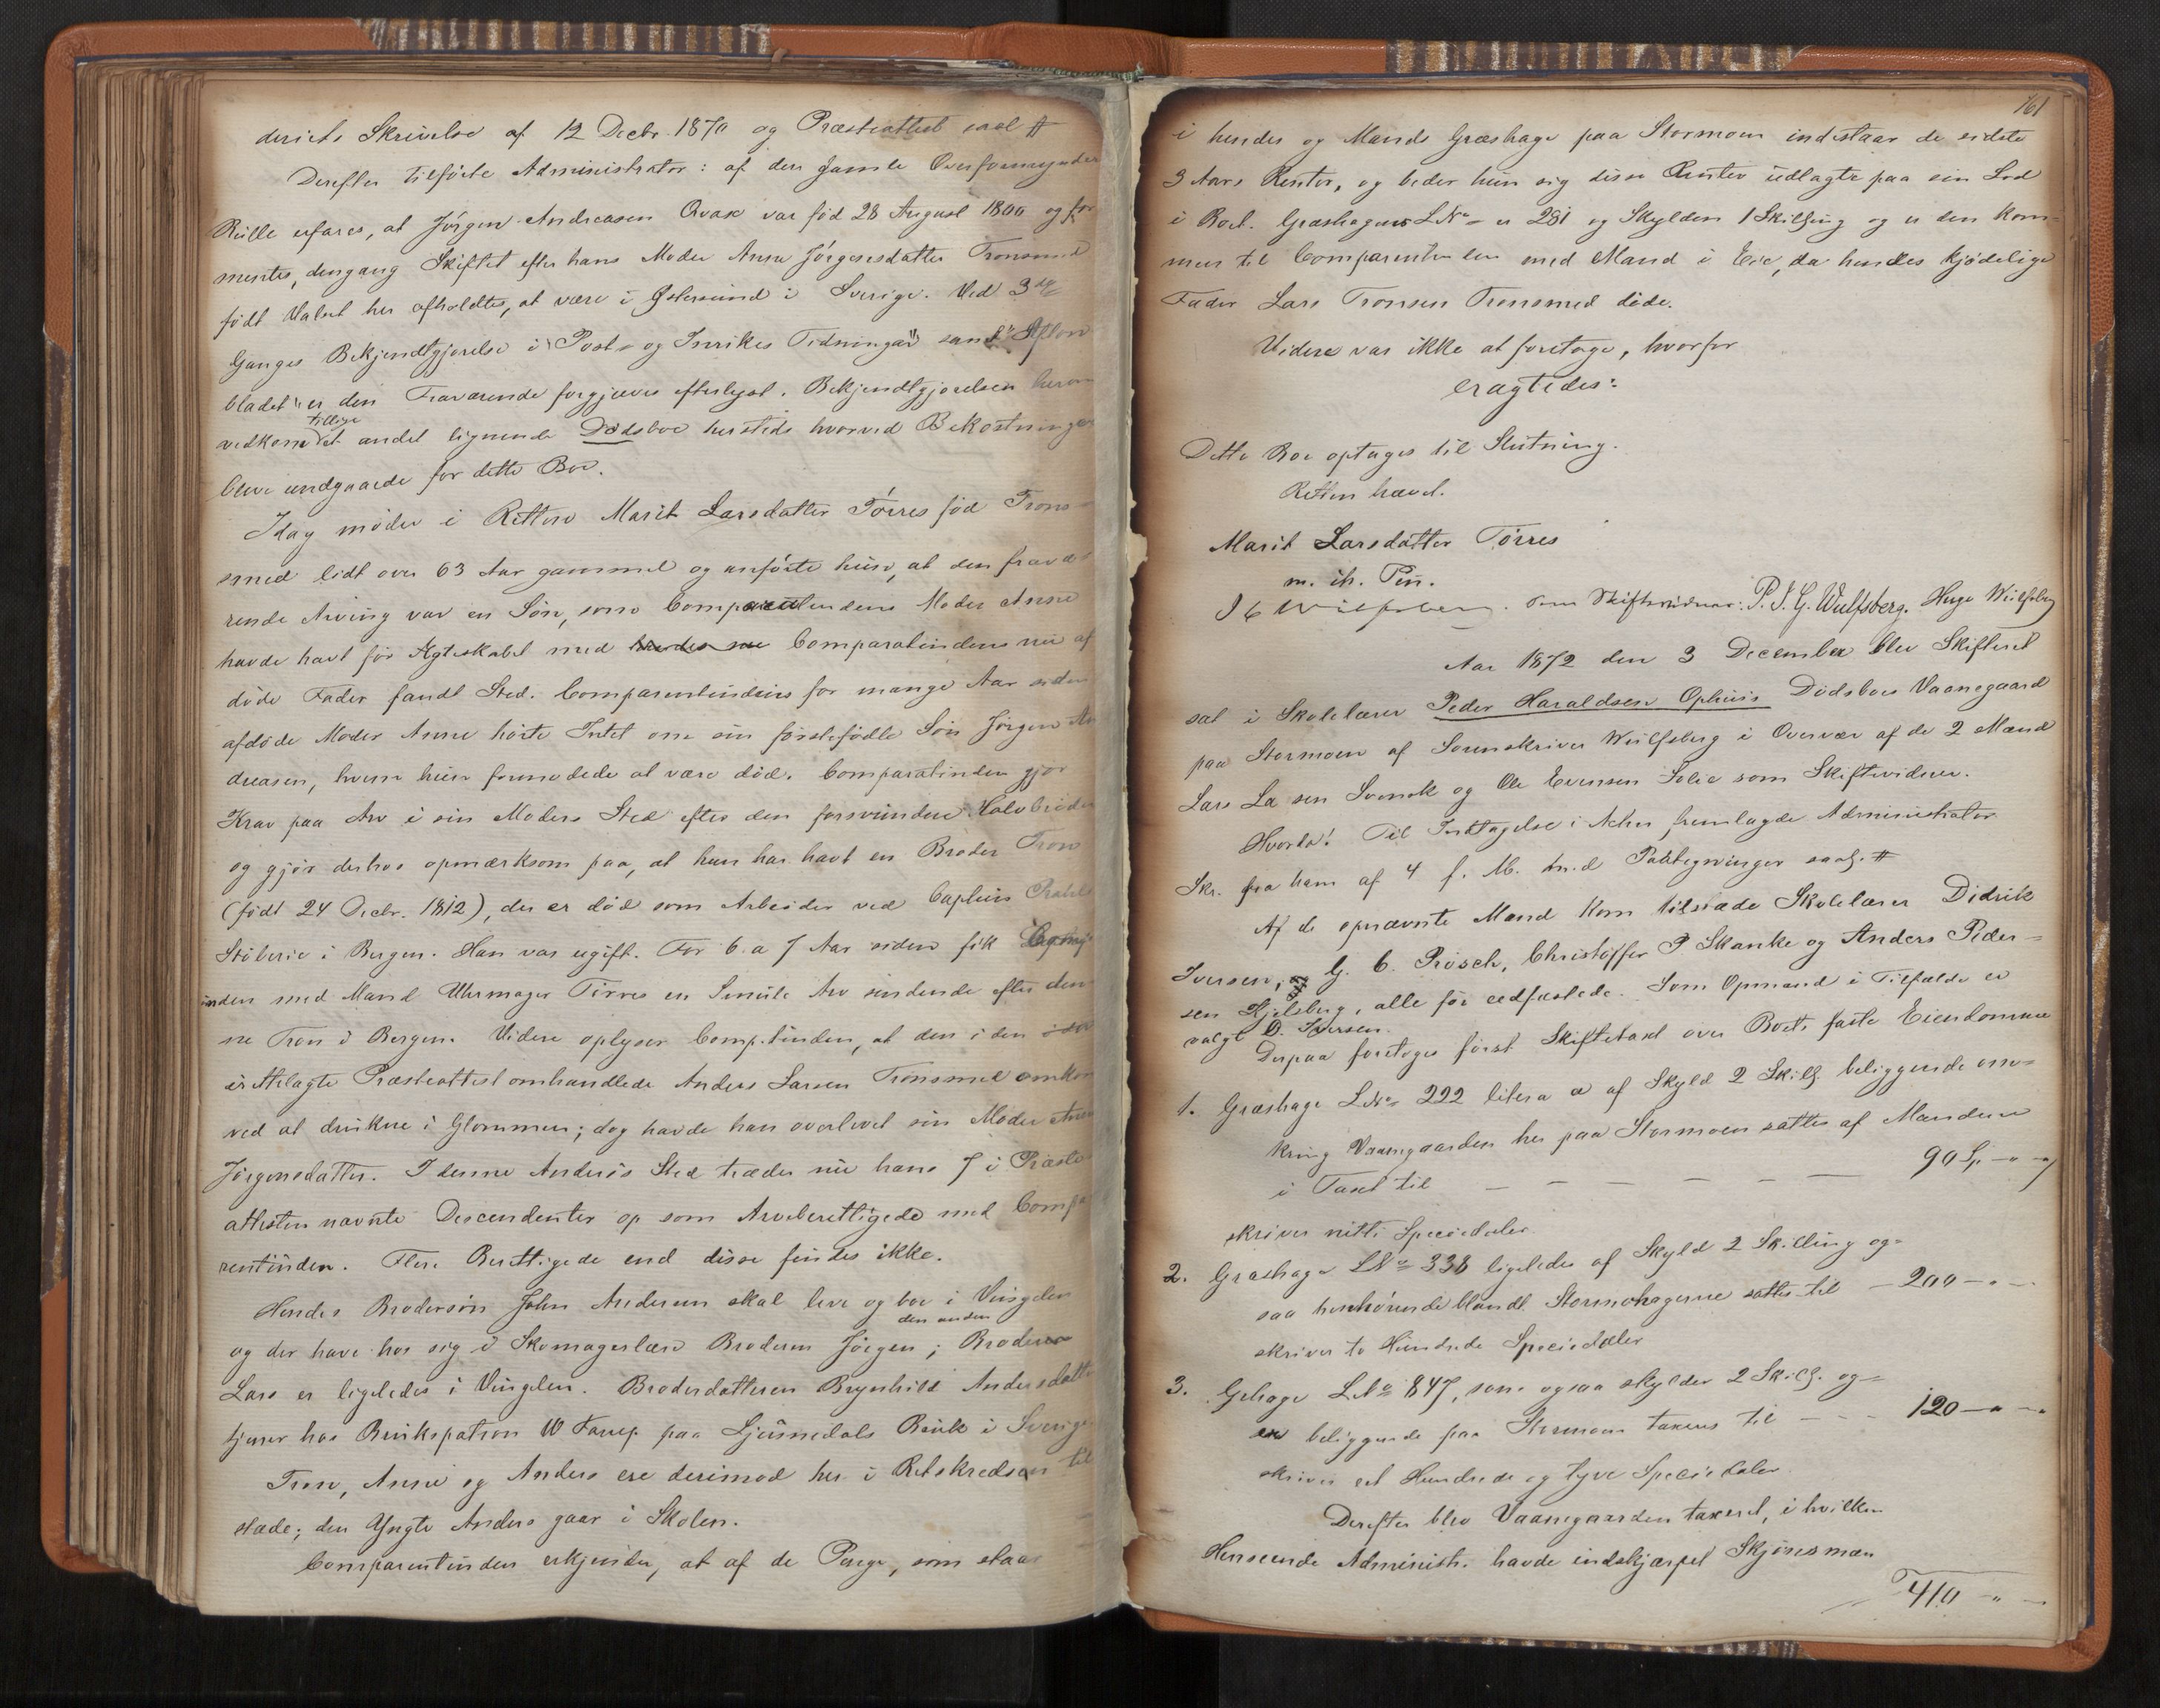 deriets Skrivelse af 12 Decbr. 1870 og Præsteattest saal #
Derefter tilførte Administrator: af den gamle Overformynder
Rulle erfares, at Jørgen Andreasen Qvak var fød 28 August 1800 og for
mentes, dengang Skiftet efter hans Moder Anne Jørgensdatter Tronsmed
født Valset her afholdtes, at være i Østersund i Sverige. Ved 3de
Ganges Bekjendtgjørelse i "Post- og Inrikes Tidningar" samt "Afton
bladet" er den Fraværende forgjæves efterlyst. Bekjendtgjørelsen herom
vedkom tillige et andet lignende Dødsboe hersteds hvorved Bekostninger
bleve undgaaede for dette Boe.
Idag møder i Retten Marit Larsdatter Tørres fød Trons-
smed lidt over 63 Aar gammel og anførte hun, at den fravæ-
rende Arving var en Søn, som Comparentindens Moder Anne
havde havt før Ægteskabet med Comparatindens nu af
døde Fader fandt Sted. Comparentindens for mange Aar siden
afdøde Moder Anne hørte Intet om sin førstefødte Søn Jørgen An
dreasen, hvem hun formodede at være død. Comparatinden gjør
Krav paa Arv i sin Moders Sted efter den forsvundne Halvbroder
og gjør derhos opmærksom paa, at hun har havt en Broder Tron
(født 24 Decbr. 1812), der er død som Arbeider ved Captein
Støberie i Bergen. Han var ugift. For 6 a 7 Aar siden fik Comp
inden med Mand Uhrmager Tørres en Smule Arv sendende efter den-
ne Tron i Bergen. Videre oplyser Comp.tinden, at den i den
irettelagte Præsteattest omhandlede Anders Larsen Tronsmed omkom
ved at drukne i Glommen; dog havde han overlevet sin Moder Anne
Jørgensdatter. I denne Anders's Sted træder nu hans 7 i Præste-
attesten nævnte Descendenter op som Arveberettigede med Compa
rentinden. Flere Berettigede end disse findes ikke.
Hendes Brodersøn John Andersen skal leve og boe i Vingelen
og der have hos sig i Skomagerlære Broderen Jørgen; den anden Broder
Lars er ligeledes i Vingelen. Broderdatteren Brynhild Andersdatter
tjener hos Brukspatron W Farup paa Ljusnedals Bruk i Sverige
Tron, Anne og Anders ere derimod her i Retskredsen til
stede; den Yngte Anders gaar i Skolen.
Comparentinden erkjender, at af de Penge, som staar
161
i hendes og Mands Græshage paa Stormoen indestaar de sidste
3 Aars Renter, og beder hun sig disse Renter udlagte paa sin Lod
i Boet. Græshagens LNo er 281 og Skylden 1 Skilling og er den kom-
men til Comparentinden med Mand i Eie, da hendes kjødelige
Fader Lars Tronsen Tronsmed døde.
Videre var ikke at foretage, hvorfor
eragtedes:
Dette Boe optages til Slutning.
Retten hævet.
Marit Larsdatter Tørres
m. ih. Pen.
Wulfsberg. Som Skiftevidner: P. J. G. Wulfsberg. Hugo Wulfsberg
Aar 1872 den 3 December blev Skifteret
sat i Skolelærer Peder Haraldsen Ophuus Dødsboes Vaanegaard
paa Stormoen af Sorenskriver Wulfsberg i Overvær af de 2 Mænd
Lars La sen Svensk og Ole Evensen Solie som Skiftevidner.
Hvorda! Til Indtagelse i Acten fremlagde Administrator
Skr. fra ham af 4 f. M. med Paategninger saal. #
Af de opnævnte Mænd kom tilstæde Skolelærer Didrik
Iversen, G. C. Prøsch, Christoffer P Skanke og Anders Peder-
sen Hjelsberg, alle før eedfæstede. Som Opmand i Tilfælde er
valgt D. Iversen.
Derpaa foretoges først Skiftetaxt over Boets faste Eiendomme
1. Græshage LNo 222 litera a af Skyld 2 Skilg. beliggende om-
kring Vaanegaarden her paa Stormoen sattes af Mændene
i Taxt til — — — — — — 90 Sp. — " — "
skriver nitti Speciedaler.
2. Græshage LNo 338 ligeledes af Skyld 2 Skilling og-
saa henhørende blandt Stormohagerne sattes til — 200 — " —
skriver to Hundrede Speciedaler
3. Gshage LNo 847, som ogsaa skylder 2 Skilg. og
er beliggende paa Stormoen taxeres til — — — 120 — " — "
skriver et Hundrede og tyve Speciedaler.
Derefter blev Vaanegaarden taxeret, i hvilken
Henseende Administr. havde indskjærpet Skjønsmæn
410 — " —